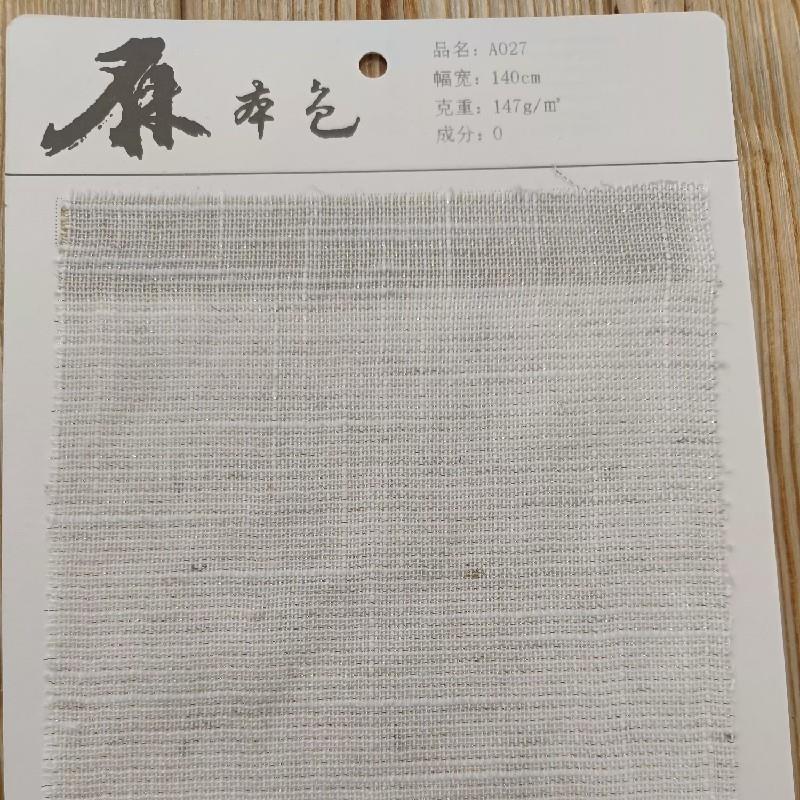 麻本色
品名: A027
幅宽: 140cm
克重: 147g/㎡
成分: 0